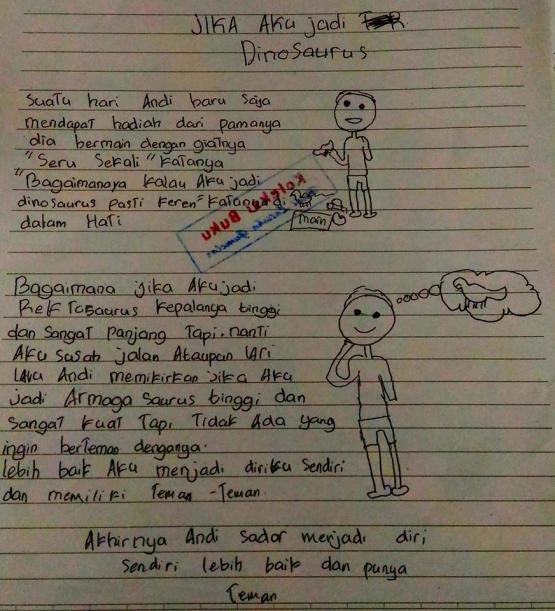 JIKA AKu jadi
Dinosaurus
Suatu hari Andi baru saja
mendapat hadiah dari pamanya
dia bermain dengan giatnya
"Seru Sekali" Katanya
"Bagaimanaya kalau Aku jadi
dinosaurus pasti keren" Katanya di
dalam Hati
Koleksi Buku
main
Bagaimana jika Aku jadi
kepalanya tinggi
dan sangat panjang Tapi. nanti
Aku susah jalan Ataupun lari
lalu Andi memikirkan jika Aku
jadi Armaga saurus tinggi dan
sangat kuat Tapi Tidak Ada yang
ingin berteman denganya.
lebih baik Aku menjadi diriku sendiri
dan memiliki Teman -Teman.
Akhirnya Andi sadar menjadi diri
sendiri lebih baik dan punya
Teman